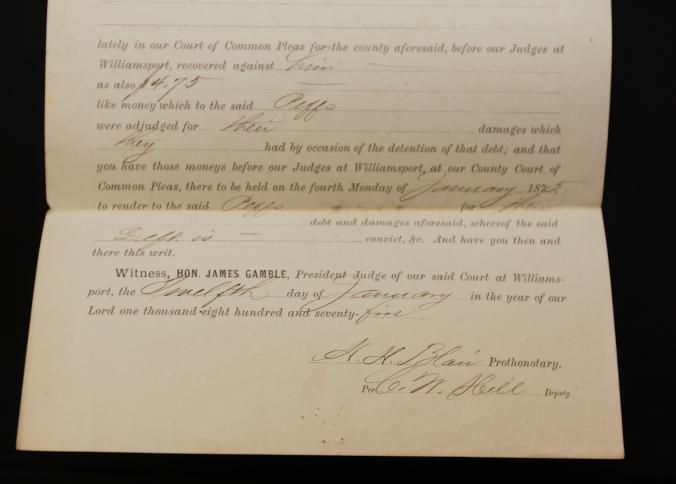 lately in our Court of Common Pleas for the county aforesaid, before our Judges at
Williamsport, recovered against him
as also $4.75
like money which to the said Peffs
were adjudged for their damages which
they had by occasion of the detention of that debt; and that
you have those moneys before our Judges at Williamsport, at our County Court of
Common Pleas, there to be held on the fourth Monday of January 1875.
to render to the said Peffs for their
debt and damages aforesaid, whereof the said
Deft. is convict, &c. And have you then and
there this writ.
Witness, HON. JAMES GAMBLE, President Judge of our said Court at Williams-
port, the Twelfth day of January in the year of our
Lord one thousand eight hundred and seventy-five
H. H. Blair Prothonotary.
Per C. W. Hill Deputy